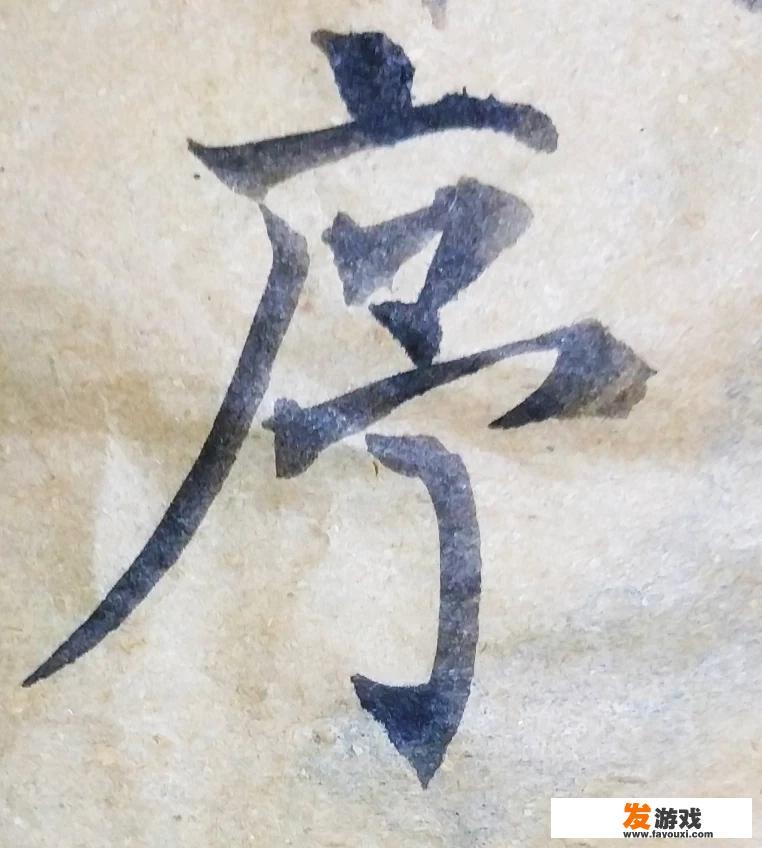 序
发游戏
www.fayouxi.com